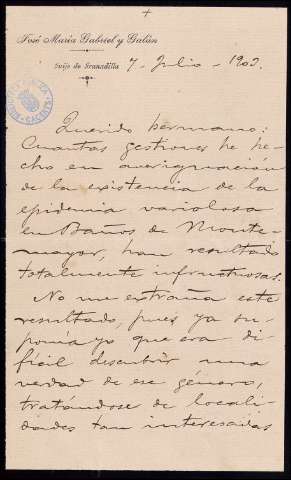 +
José María Gabriel y Galán
Guijo de Granadilla
7 - Julio - 1902.
Querido hermano:
Cuantas gestiones he he-
cho en averiguación
de la existencia de la
epidemia variolosa
en Baños de Monte-
mayor, han resultado
totalmente infructuosas.
No me extraña este
resultado, pues ya su-
ponía yo que era di-
fícil descubrir una
verdad de ese género,
tratándose de locali-
dades tan interesadas